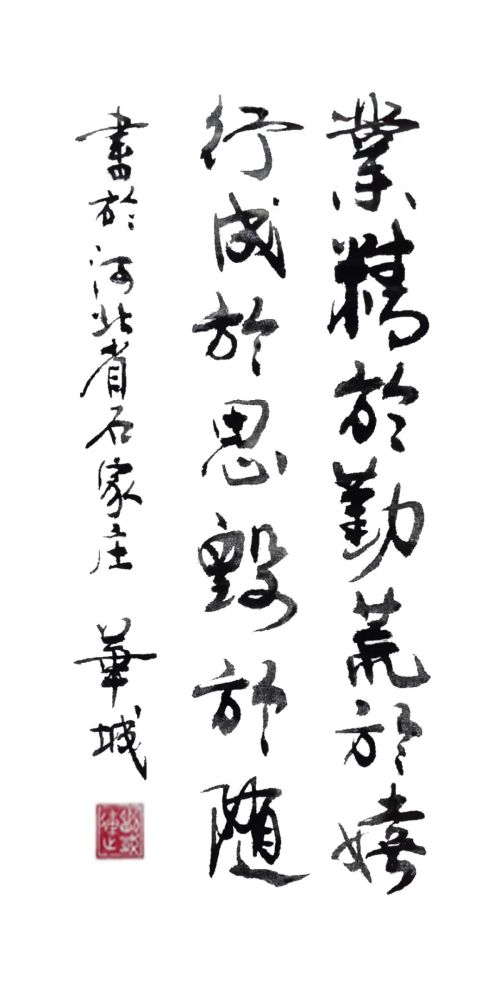 業精於勤荒於嬉
行成於思毀於随
書於河北省石家庄 華城